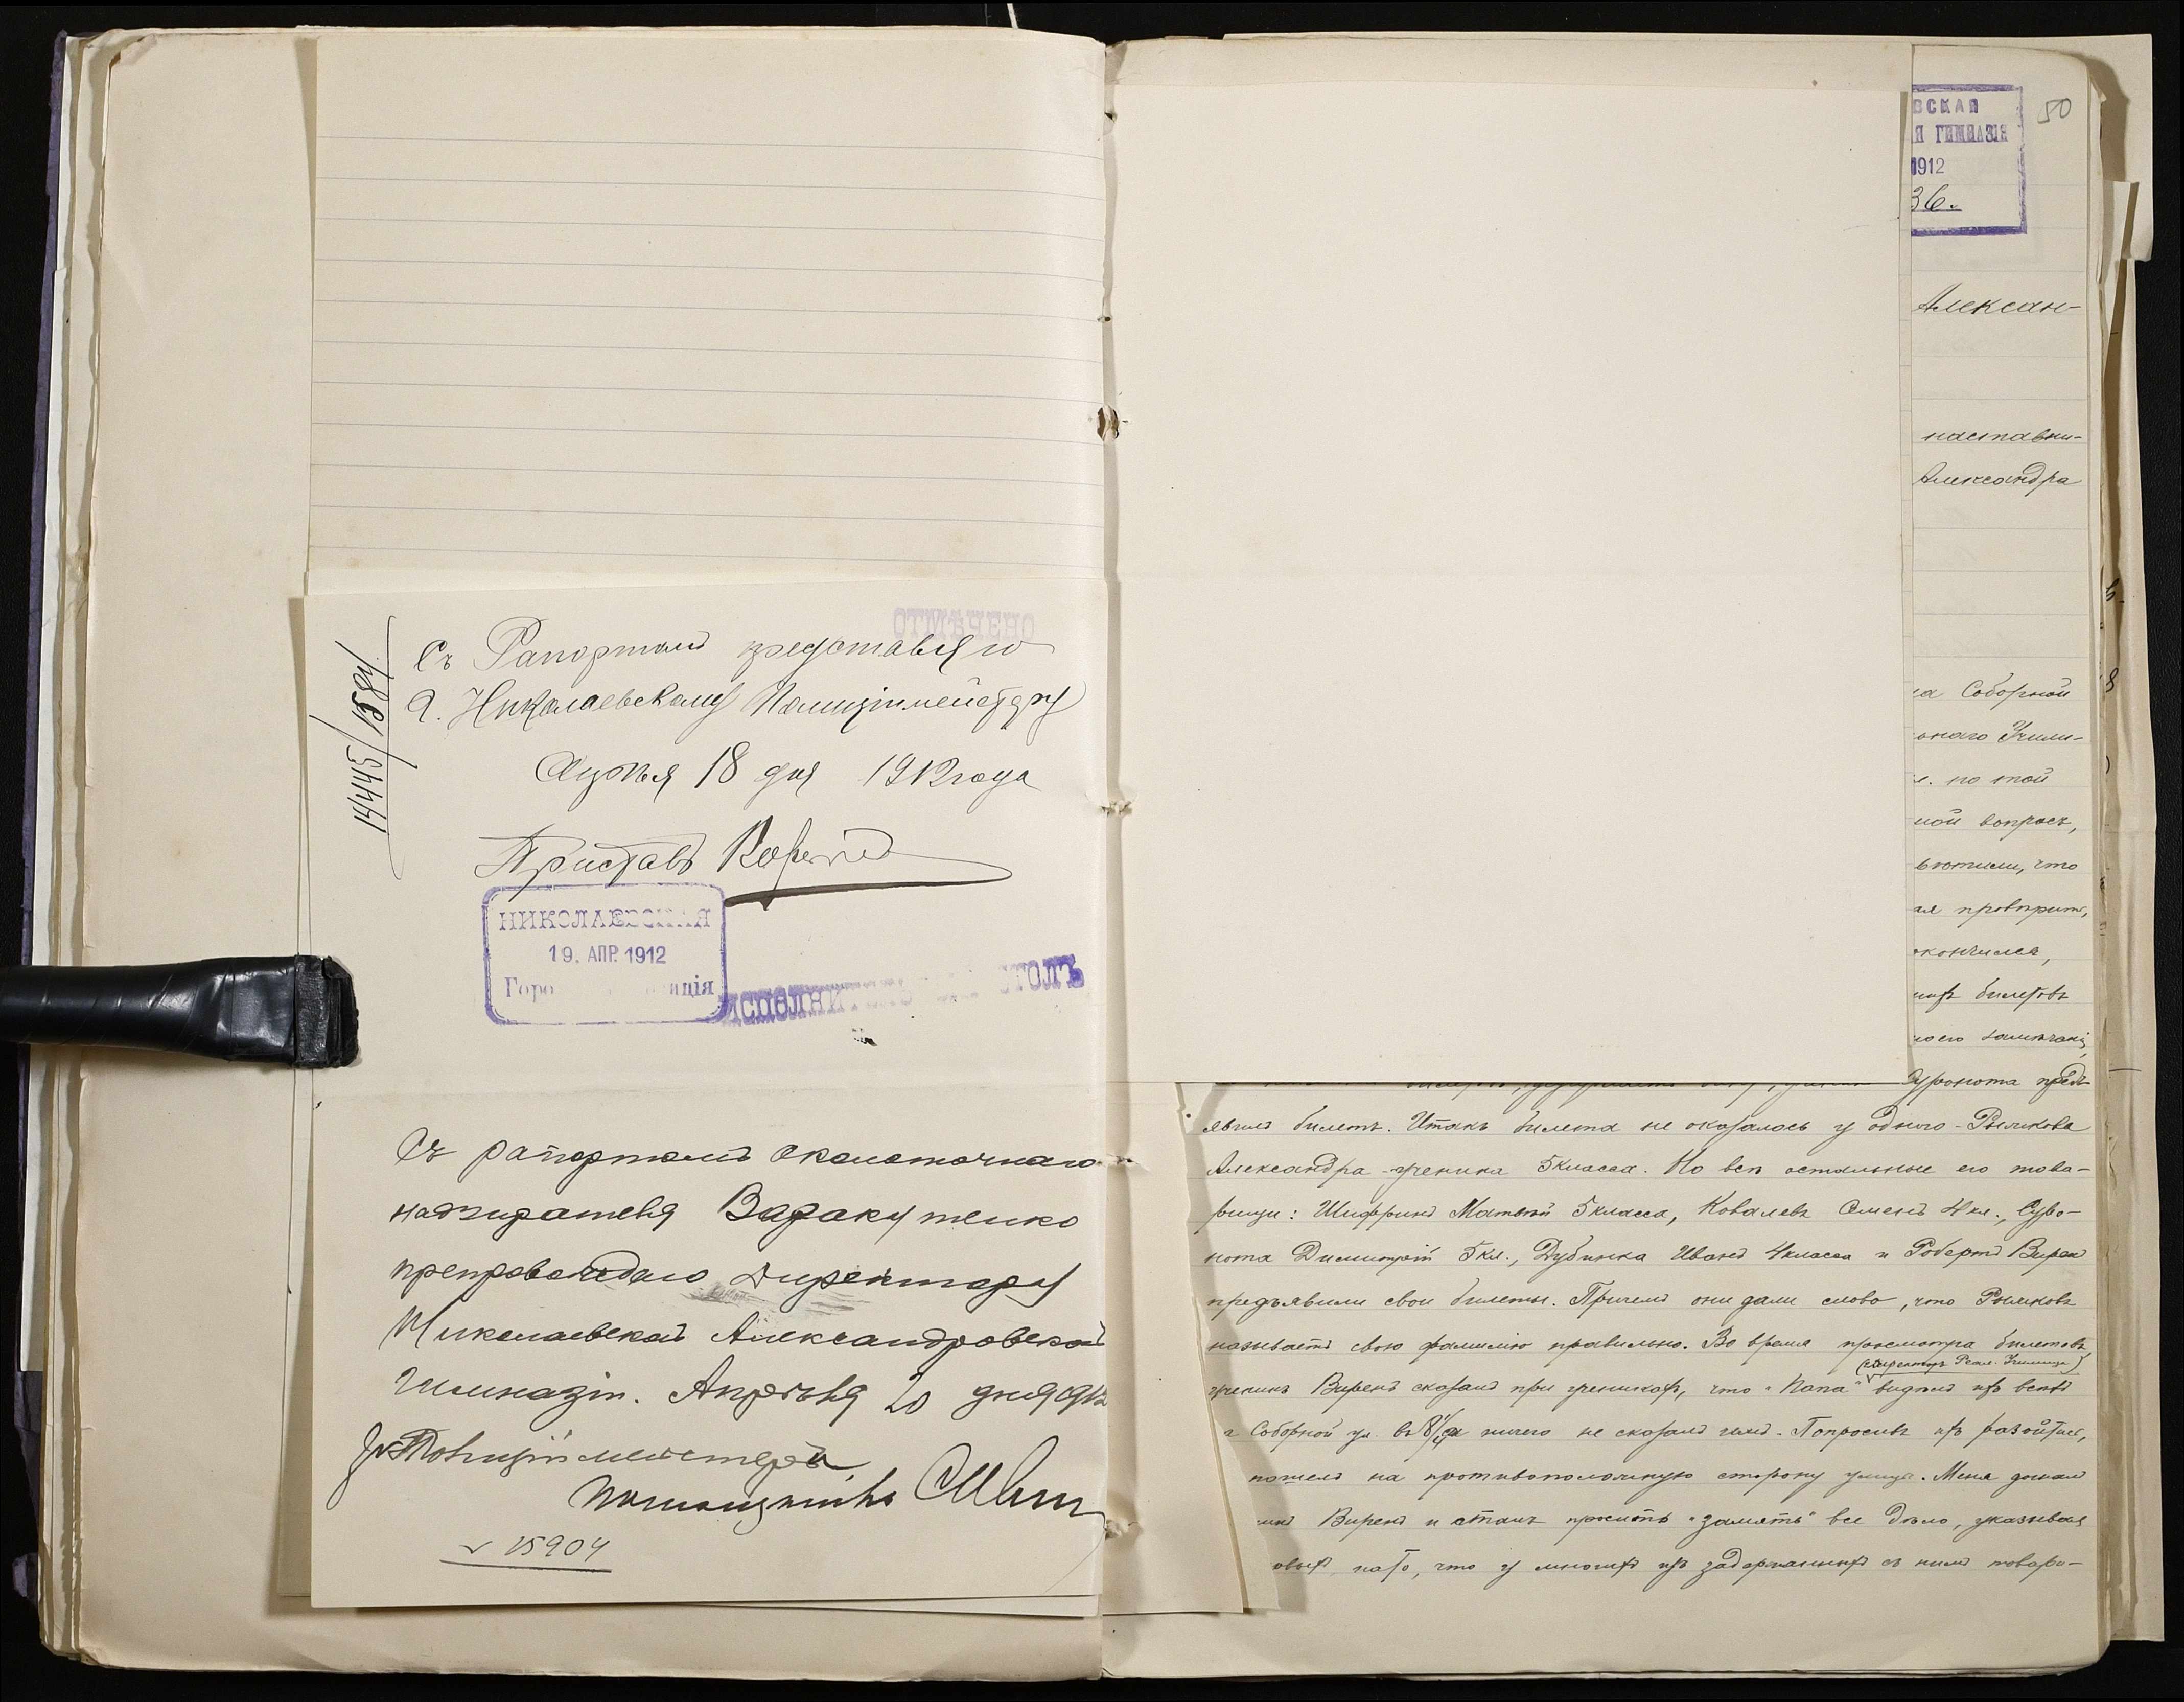 ОТМѢЧЕНО
14445/1584
Съ Рапортомъ представляю
Г. Николаевскому Полиціймейстеру
Апрѣля 18 дня 1912 года
Приставъ
НИКОЛАЕВСКАЯ
19. АПР. 1912
Горо иція
ИСПОЛНИ СТОЛЪ
Съ рапортомъ околоточнаго
надзирателя
препровождаю Директору
Николаевской Александровской
Гимназіи. Апрѣля 20 дня 1912
Полиціймейстера
Помощникъ
15904
ВСКАЯ
Я ГИМНАЗІЯ
1912
36.
50
Алексан-
наставни-
Александра
на Соборной
ьнаго Учили-
. по той
мой вопросъ,
ѣтили, что
ая провѣрить,
окончился,
ихъ билетовъ
моего замѣчанія
Суронота предъ-
явилъ билетъ. Итакъ билета не оказалось у одного - Рыликова
Александра - ученика 5 класса. Но всѣ остальные его това-
рищи: Шифринъ Матвѣй 5 класса, Ковалевъ Семенъ 4 кл., Суро-
нота Димитрій 5 кл., Дубинка Иванъ 4 класса и Робертъ Виренъ
предъявили свои билеты. Причемъ они дали слово, что Рыликовъ
называетъ свою фамилію правильно. Во время просмотра билетовъ,
(директоръ Реал. Училища)
ученикъ Виренъ сказалъ при ученикахъ, что "Папа" видѣлъ ихъ всѣхъ
а Соборной ул. въ 8 1/4 ч ничего не сказалъ имъ. Попросивъ ихъ разойтись,
пошелъ на противоположную сторону улицы. Меня догналъ
никъ Виренъ и сталъ просить "замять" все дѣло, указывая
на то, что у многихъ изъ задержанныхъ съ нимъ товари-